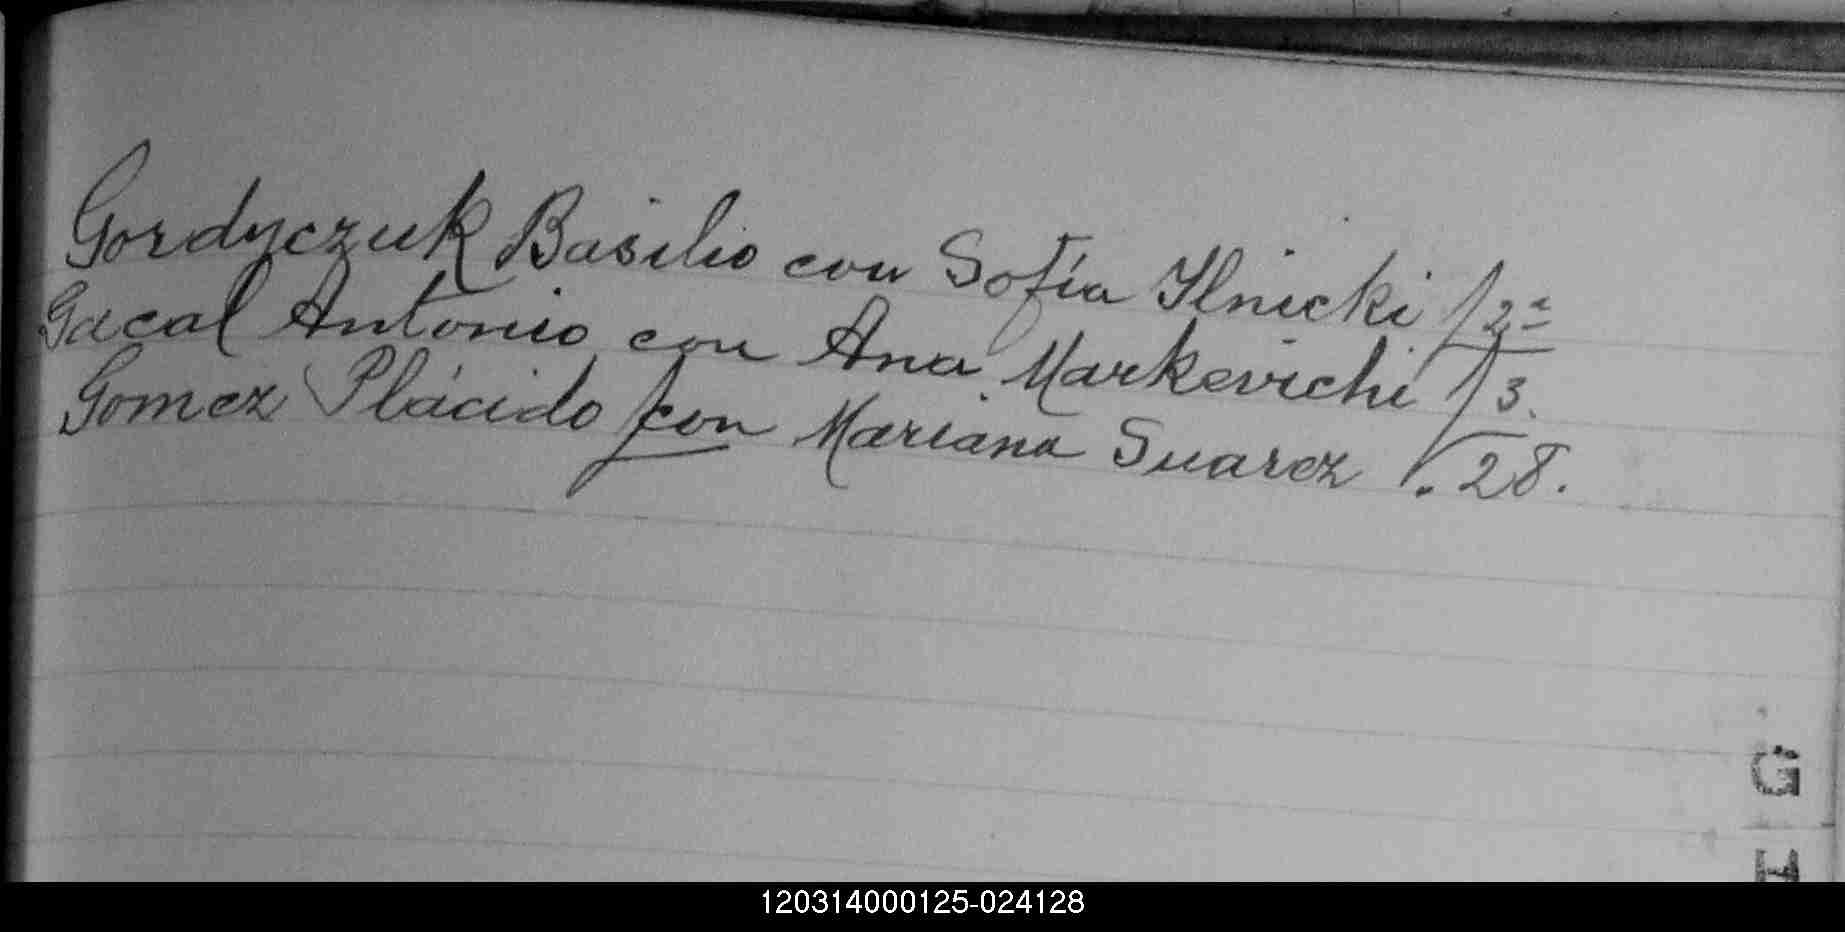 Gordyczuk Basilio con Sofía Ilnicki / 2ª
Gacal Antonio con Ana Markevichi / 3.
Gomez Plácido con Mariana Suarez /. 28.
G
H
120314000125-024128